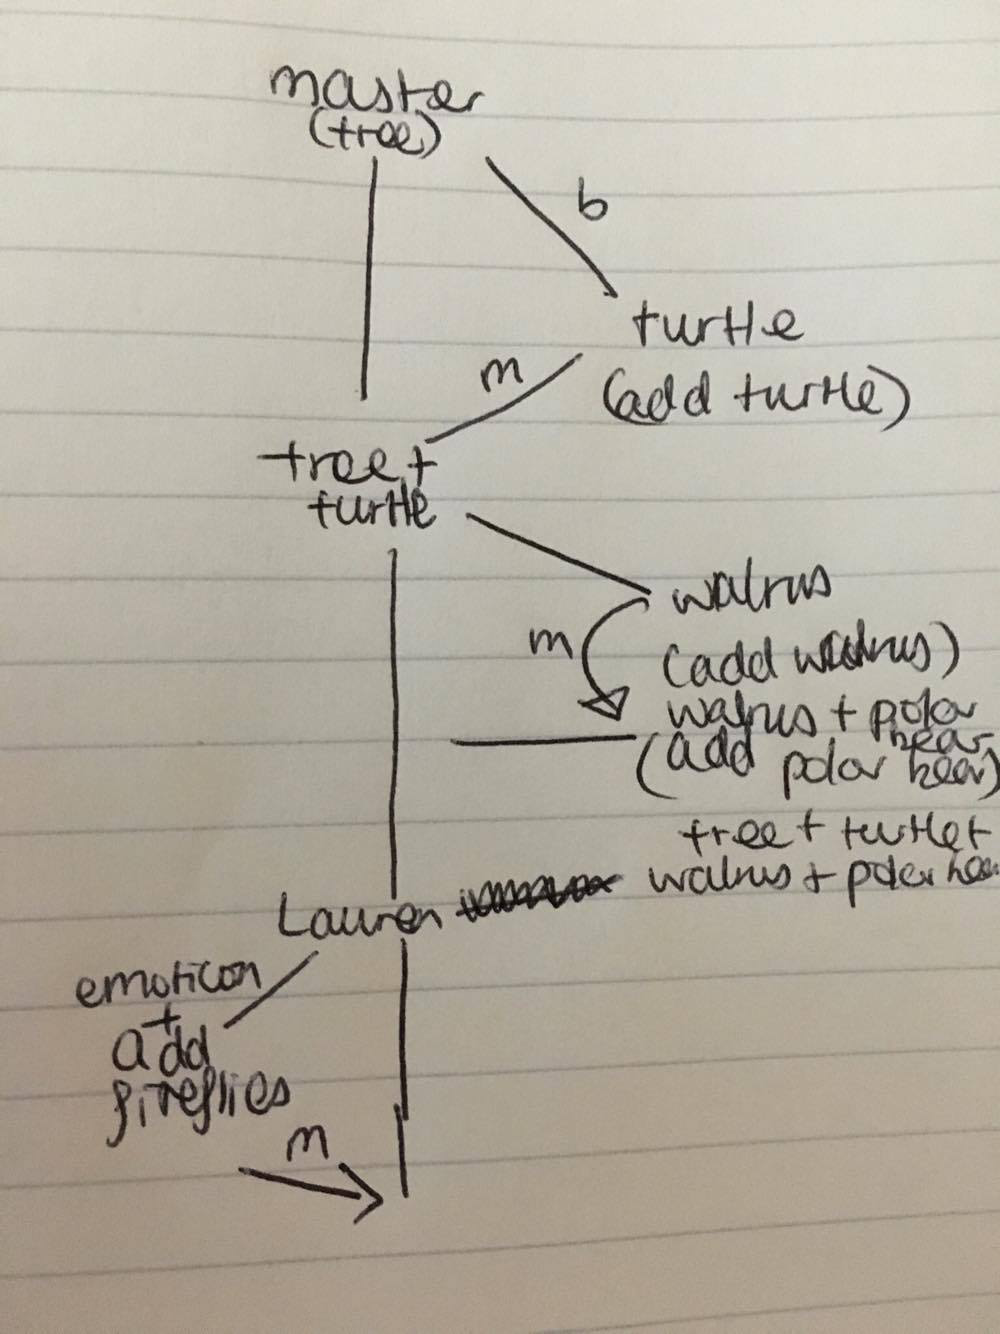 master
(tree)
b
turtle
m
(add turtle)
tree +
turtle
walrus
m
(add walrus)
walrus + polar
bear
(add polar bear)
tree + turtle +
Lauren walrus + polar bear
emoticon
+
add
fireflies
m